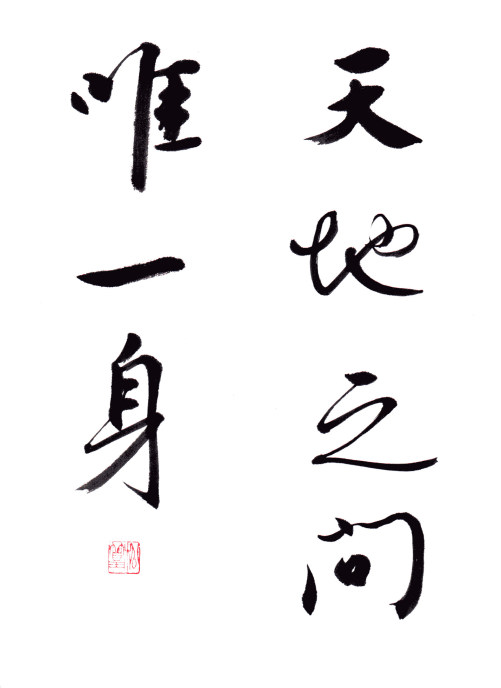 天地之間
唯一身